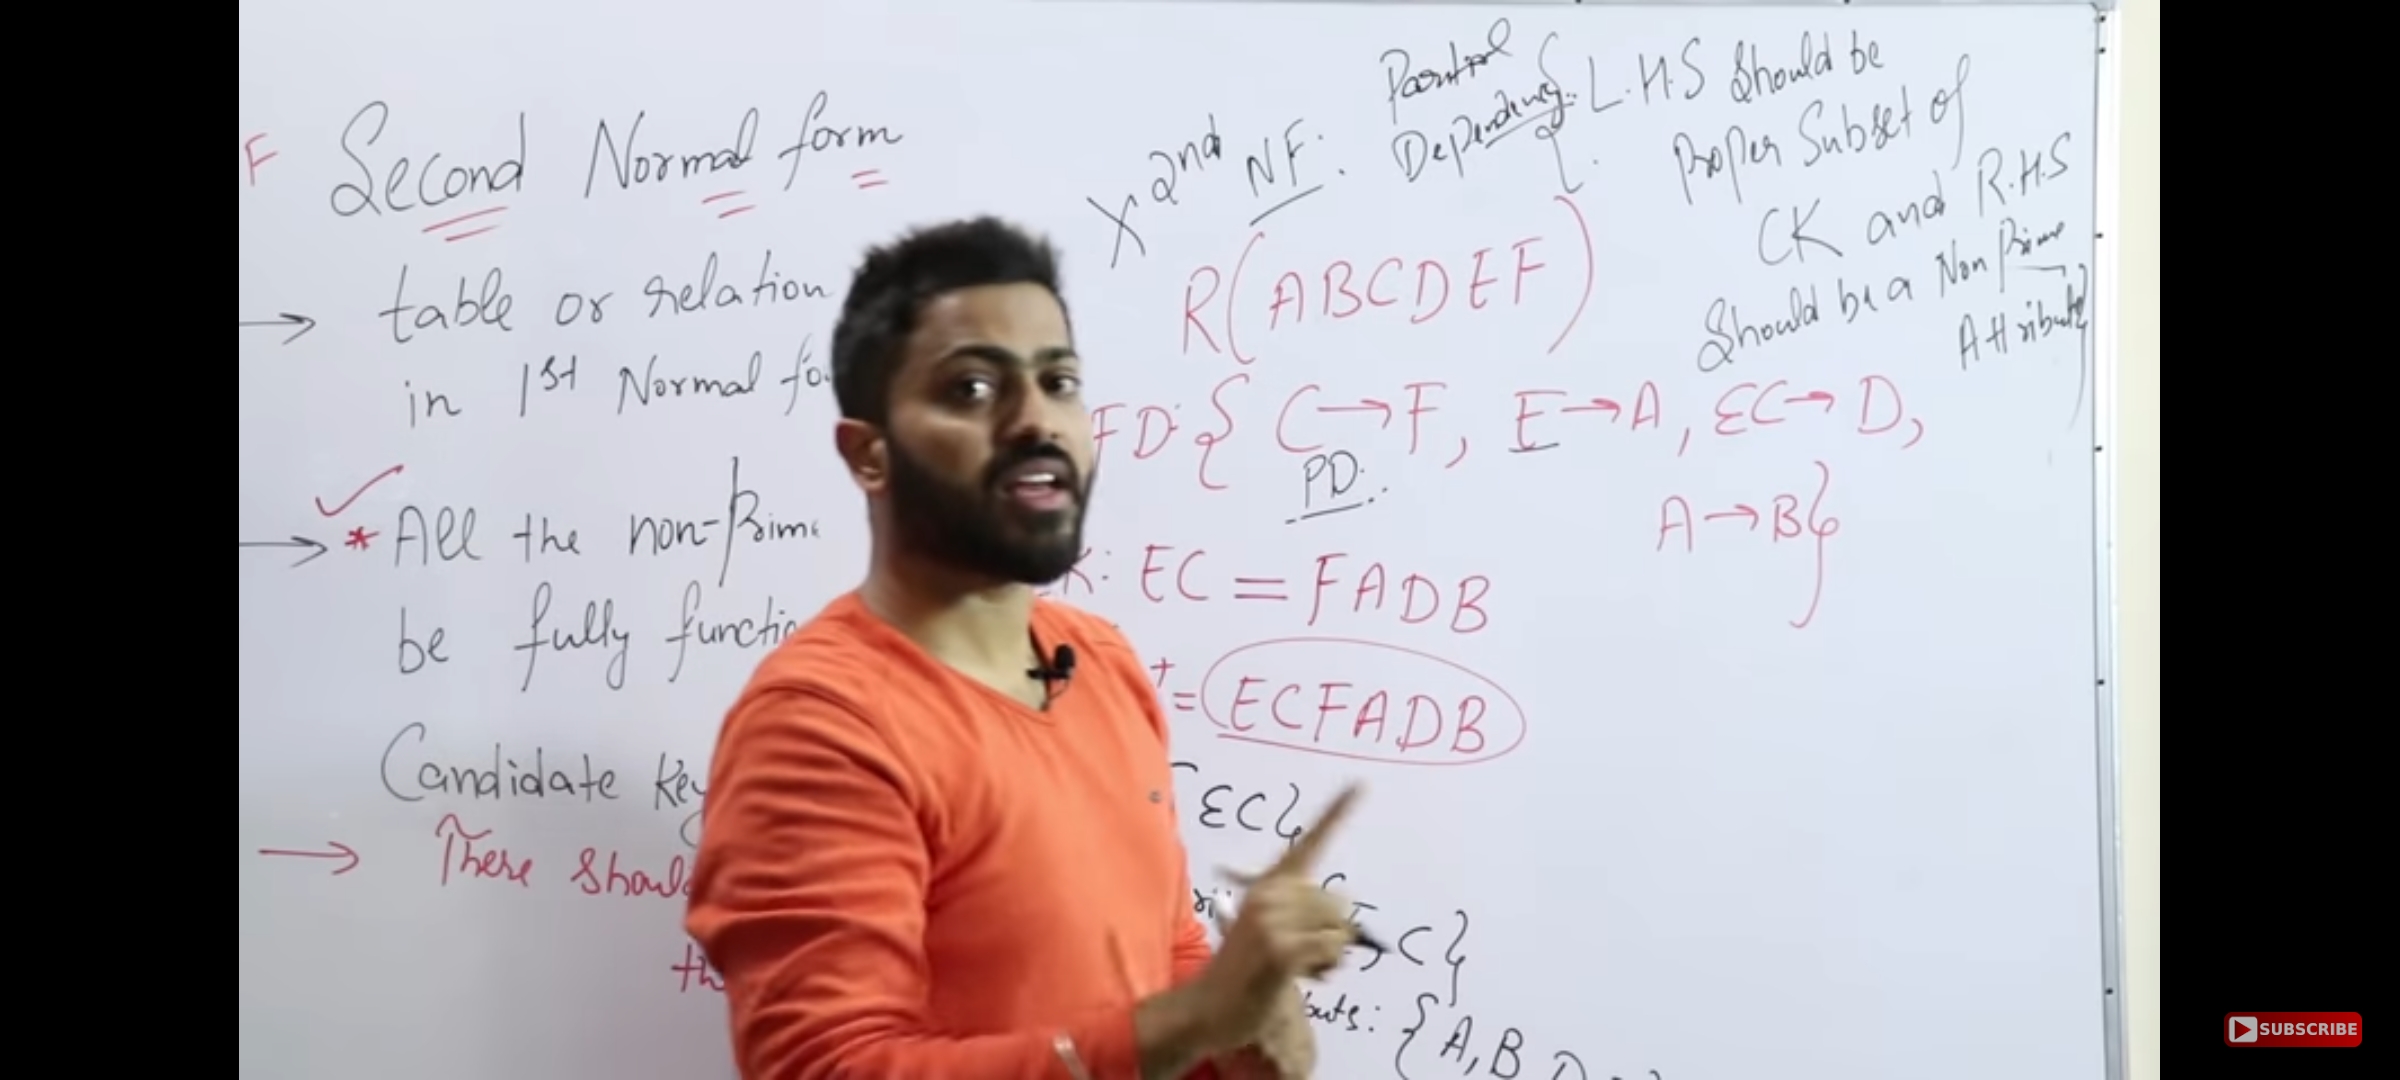 F Second Normal form
table or relation
in 1st Normal fo
* All the non-Prime
be fully functio
Candidate Key
There should
th
X 2nd NF:
Partial
Dependency: { L.H.S Should be
Proper Subset of
CK and R.H.S
Should be a Non Prime
Attribute}
R(ABCDEF)
FD: { C→F, E→A, EC→D,
A→B}
PD:
K: EC = FADB
+ = ECFADB
EC}
C}
buts: {A, B
SUBSCRIBE